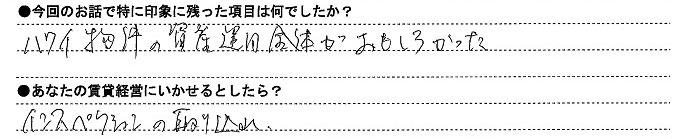 ●今回のお話で特に印象に残った項目は何でしたか？
ハワイ物件の資産運用全体がおもしろかった
●あなたの賃貸経営にいかせるとしたら？
インスペクションの取り入れ、